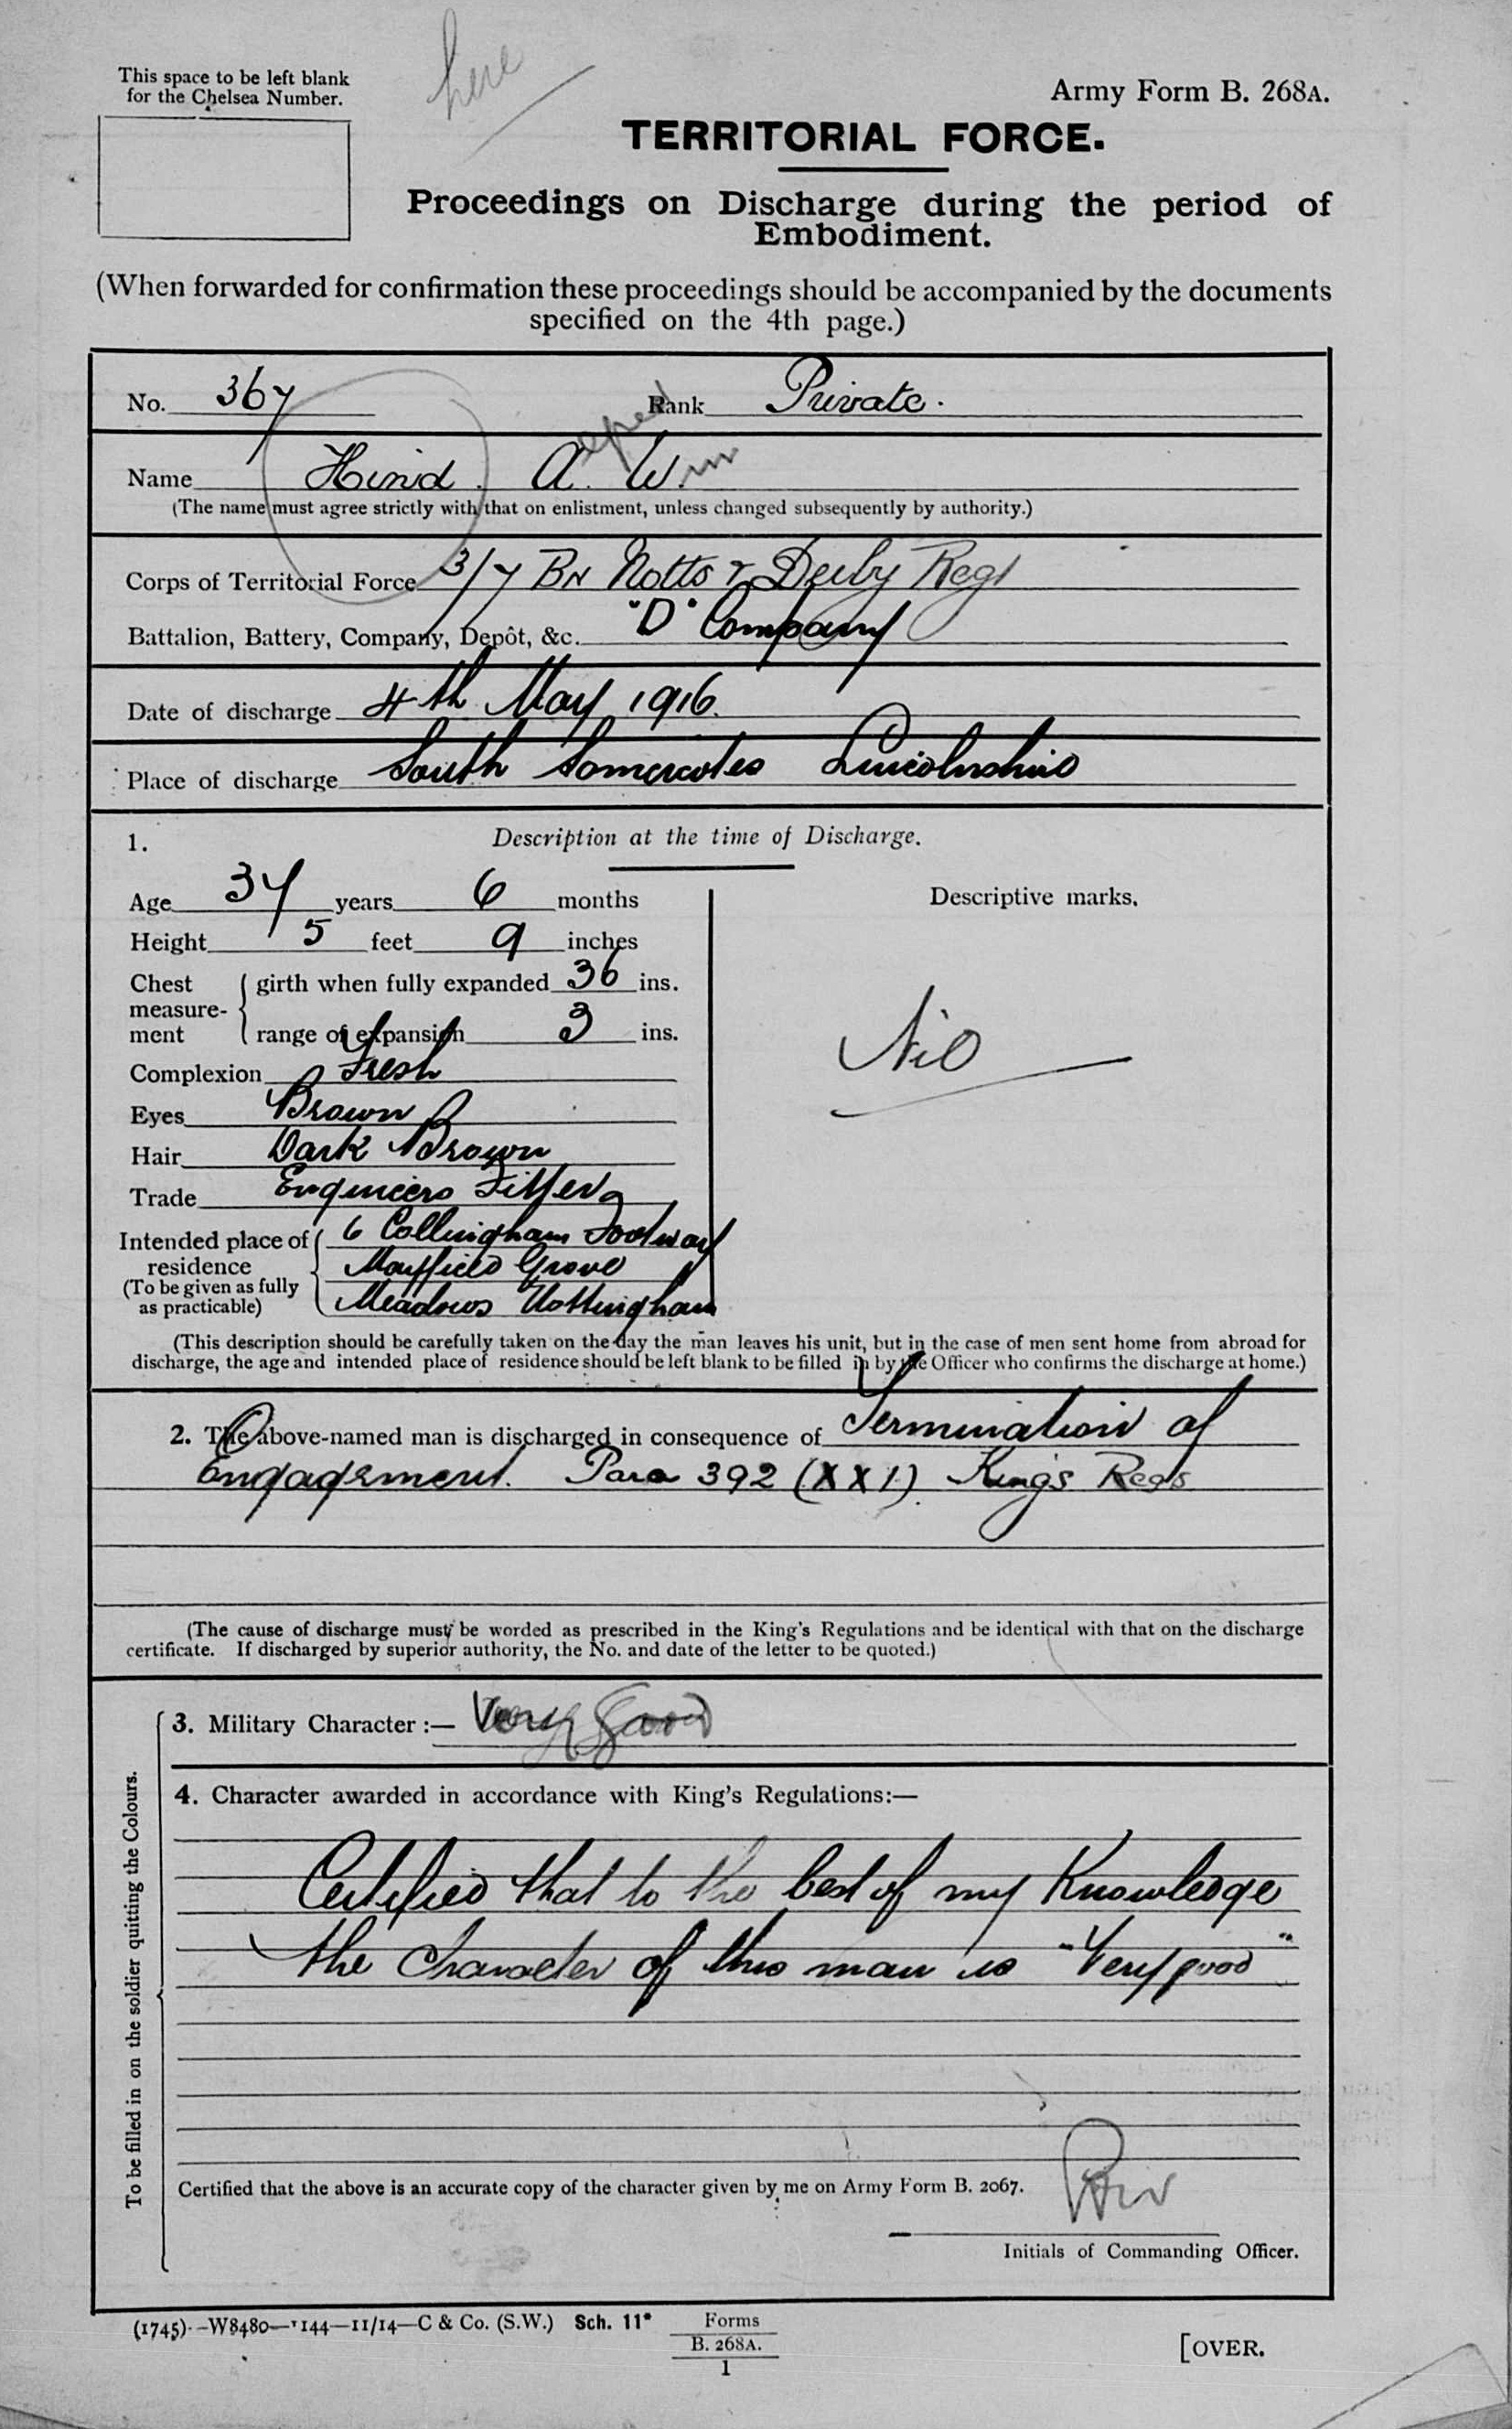 here
This space to be left blank
for the Chelsea Number.
Army Form B. 268A.
TERRITORIAL FORCE.
Proceedings on Discharge during the period of
Embodiment.
(When forwarded for confirmation these proceedings should be accompanied by the documents
specified on the 4th page.)
No. 367 Rank Private.
Name Hind. A. Wm
(The name must agree strictly with that on enlistment, unless changed subsequently by authority.)
Corps of Territorial Force 3/7 Bn Notts & Derby Regt
Battalion, Battery, Company, Depôt, &c. "D" Company
Date of discharge 4th May 1916.
Place of discharge South Somercotes Lincolnshire
1. Description at the time of Discharge.
Age 37 years 6 months
Descriptive marks.
Height 5 feet 9 inches
Chest measurement { girth when fully expanded 36 ins.
range of expansion 3 ins.
Nil
Complexion Fresh
Eyes Brown
Hair Dark Brown
Trade Engineers Fitter
Intended place of residence (To be given as fully as practicable) { 6 Collingham Footway
Mayfield Grove
Meadows Nottingham
(This description should be carefully taken on the day the man leaves his unit, but in the case of men sent home from abroad for
discharge, the age and intended place of residence should be left blank to be filled in by the Officer who confirms the discharge at home.)
2. The above-named man is discharged in consequence of Termination of
Engagement. Para 392 (XXI) Kings Regs
(The cause of discharge must be worded as prescribed in the King's Regulations and be identical with that on the discharge
certificate. If discharged by superior authority, the No. and date of the letter to be quoted.)
To be filled in on the soldier quitting the Colours.
3. Military Character :— Very good
4. Character awarded in accordance with King's Regulations:—
Certified that to the best of my Knowledge
the Character of this man is "Very good"
Certified that the above is an accurate copy of the character given by me on Army Form B. 2067.
Initials of Commanding Officer.
(1745)--W8480—1144—11/14—C & Co. (S.W.) Sch. 11* Forms
B. 268A.
1
[OVER.